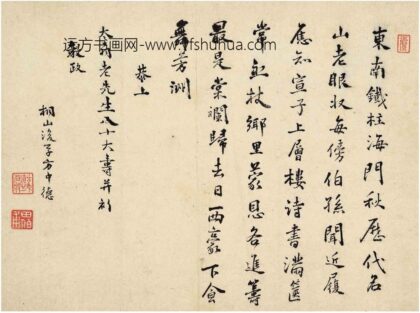 東南鐵柱海門秋歷代名
山老眼收每傍伯孫聞近履
舊知宣子上層樓詩書滿篋
常扶杖鄉里蒙恩各進籌
最是棠瀾歸去日一兩豪下食
芳洲
恭上
老先生八十大壽并祈
教政
桐山後學方中德
远方书画网-www.yfshuhua.com